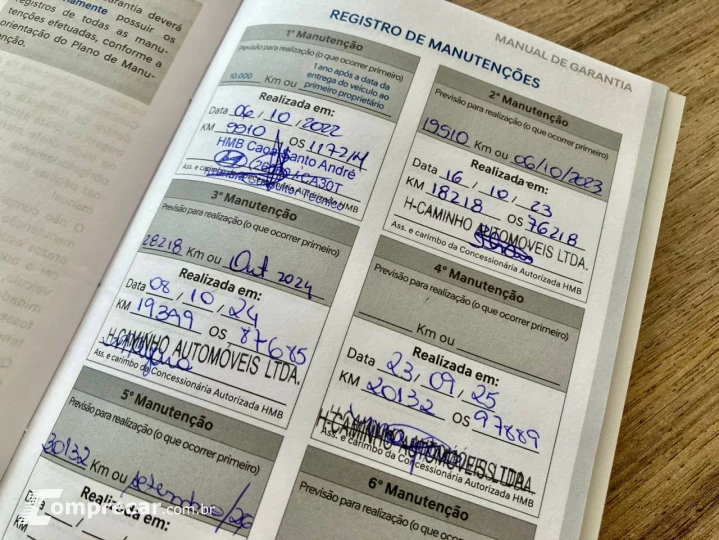 arantia deverá
amente possuir os
registros de todas as manu-
tenções efetuadas, conforme a
orientação do Plano de Manu-
enção.
MANUAL DE GARANTIA
REGISTRO DE MANUTENÇÕES
1ª Manutenção
Previsão para realização (o que ocorrer primeiro)
10.000 Km ou 1 ano após a data da
entrega do veículo ao
primeiro proprietário
Realizada em:
Data 06 / 10 / 2022
KM 9910 OS 117214
HMB Caoa Santo André
Ass. e carimbo da Concessionária Autorizada HMB
2ª Manutenção
Previsão para realização (o que ocorrer primeiro)
19910 Km ou 06/10/2023
Realizada em:
Data 16 / 10 / 23
KM 18218 OS 76218
H-CAMINHO AUTOMOVEIS LTDA.
Ass. e carimbo da Concessionária Autorizada HMB
3ª Manutenção
Previsão para realização (o que ocorrer primeiro)
28218 Km ou Out 2024
Realizada em:
Data 08 / 10 / 24
KM 19399 OS 87685
H-CAMINHO AUTOMÓVEIS LTDA.
Ass. e carimbo da Concessionária Autorizada HMB
4ª Manutenção
Previsão para realização (o que ocorrer primeiro)
Km ou
Realizada em:
Data 23 / 09 / 25
KM 20132 OS 97889
H-CAMINHO AUTOMOVEIS LTDA.
Ass. e carimbo da Concessionária Autorizada HMB
5ª Manutenção
Previsão para realização (o que ocorrer primeiro)
30132 Km ou setembro/26
Realizada em:
KM
6ª Manutenção
Previsão para realização (o que ocorrer primeiro)
Km ou
Comprecar.com.br